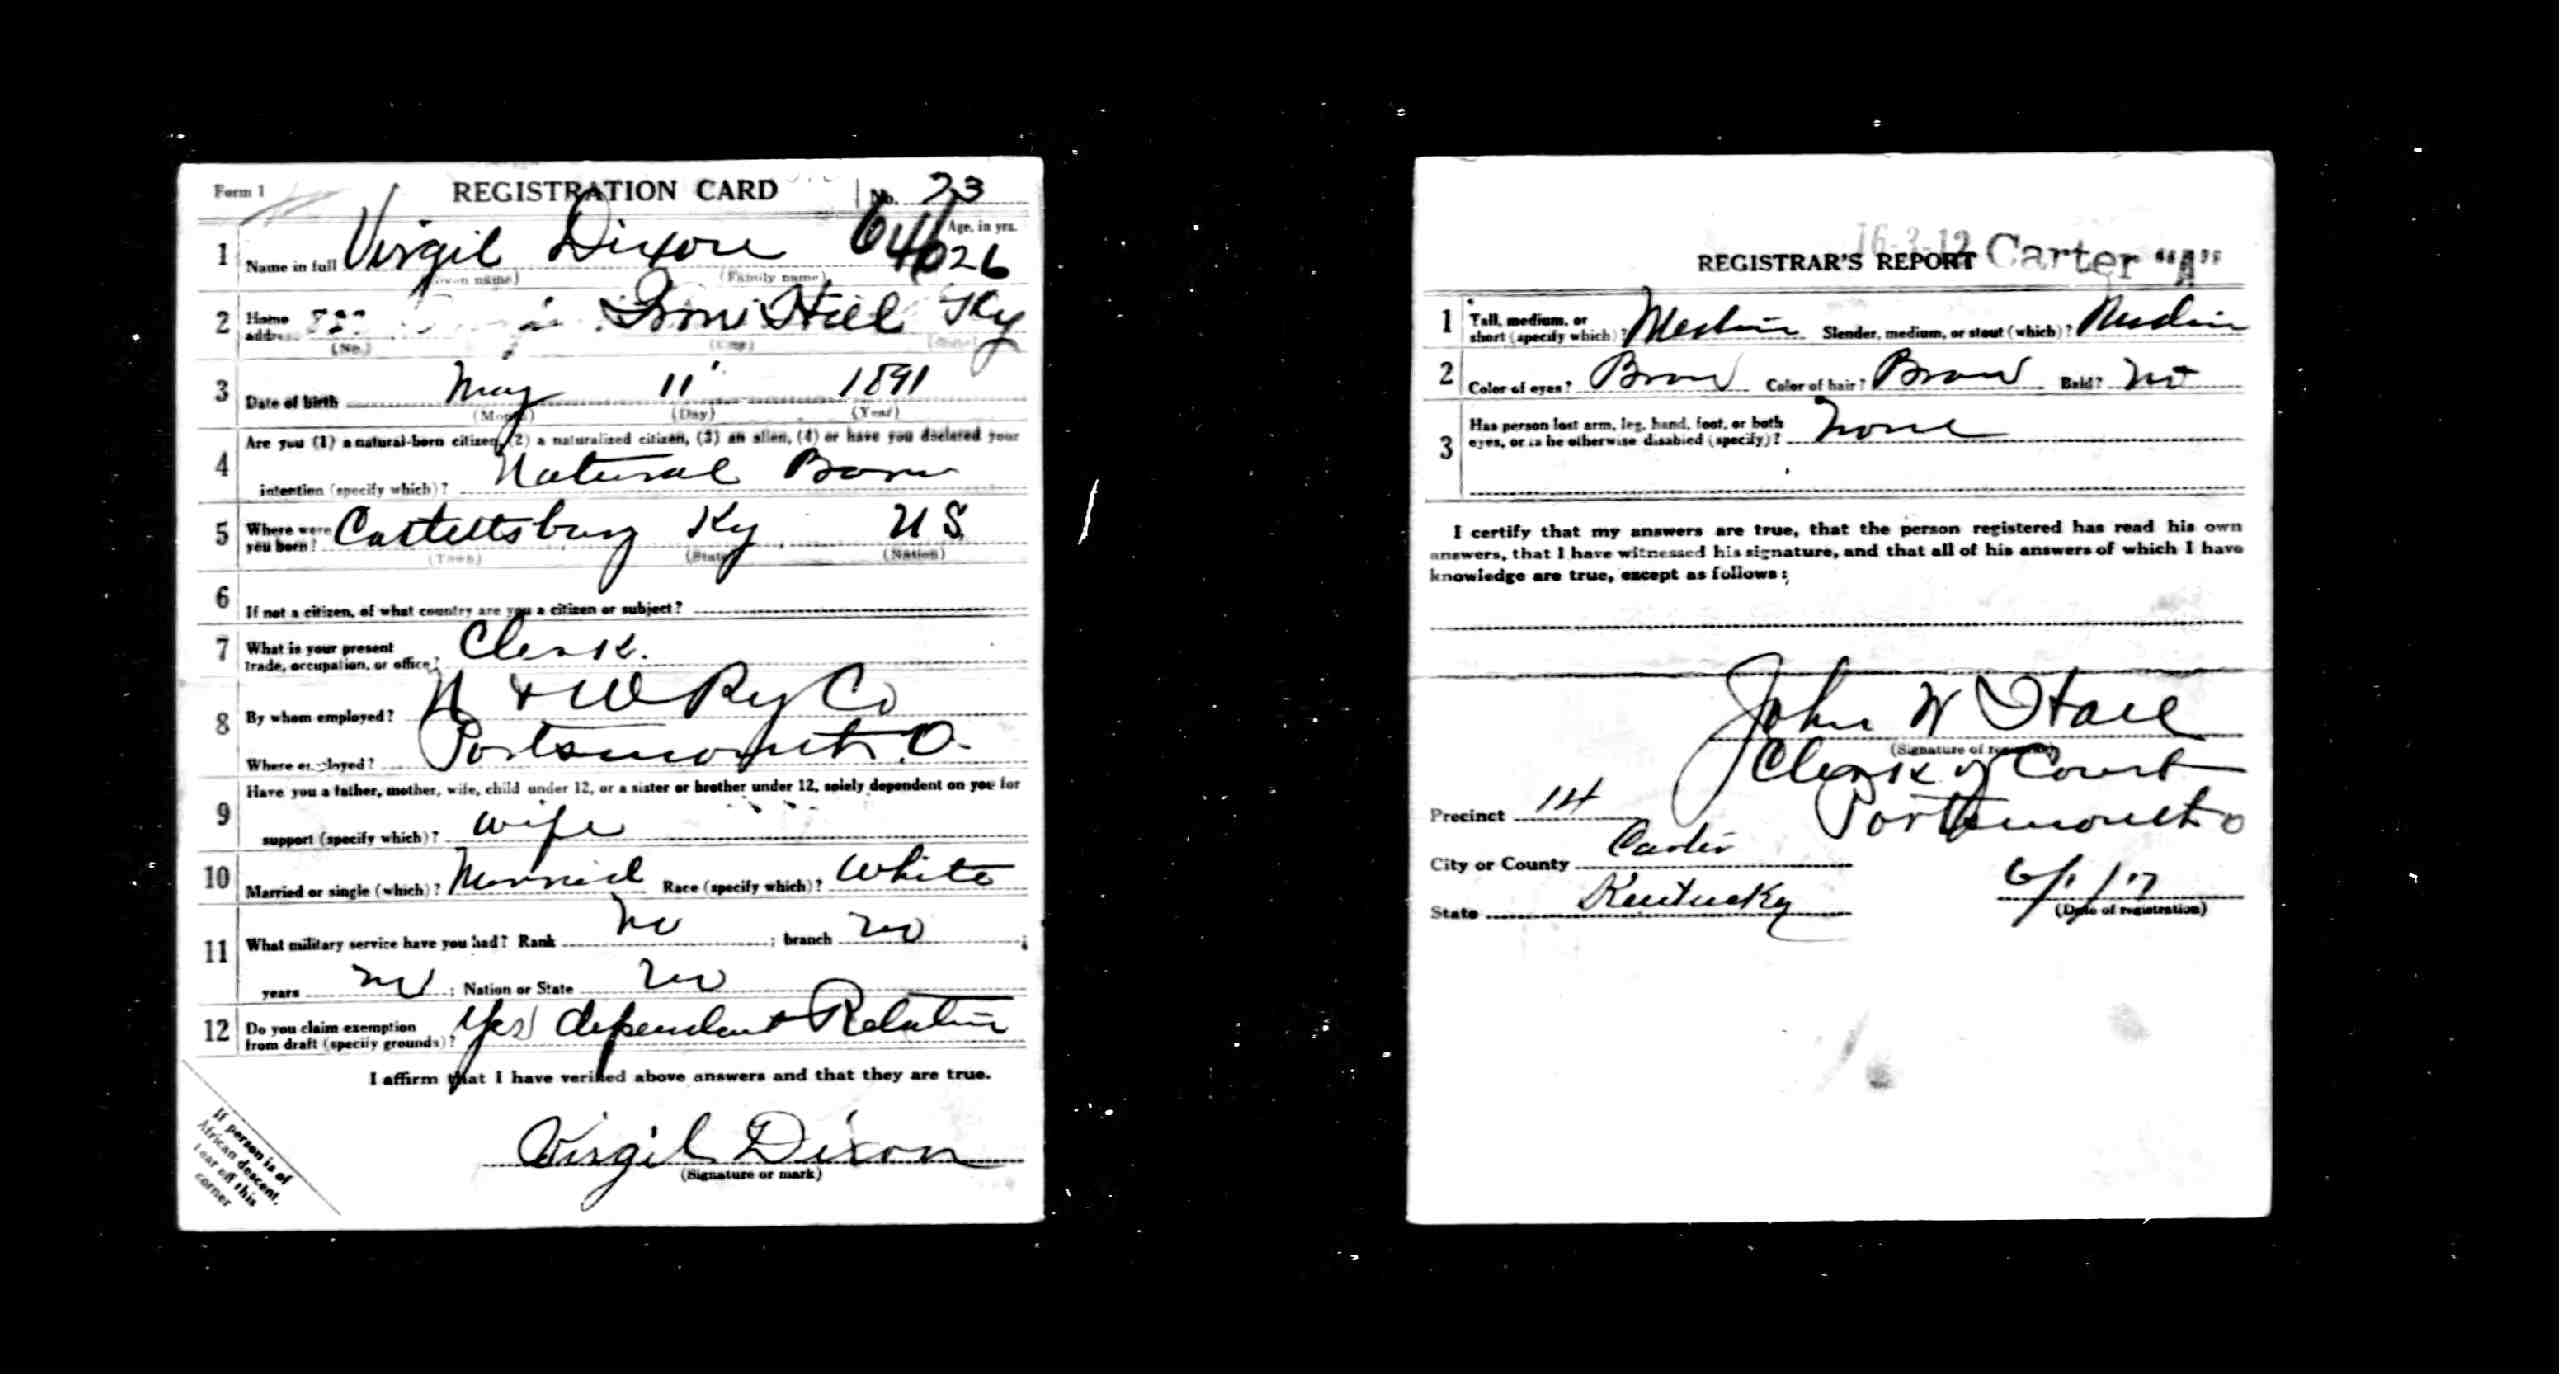 Form 1
REGISTRATION CARD
No. 23
Age, in yrs.
1 Name in full Virgil Dixon 26
(Given name) (Family name)
2 Home address Iron Hill Ky
(No.) (City) (State)
3 Date of birth May 11 1891
(Month) (Day) (Year)
4 Are you (1) a natural-born citizen, (2) a naturalized citizen, (3) an alien, (4) or have you declared your
intention (specify which)? Natural Born
5 Where were you born? Cattettsburg Ky US
(Town) (State) (Nation)
6 If not a citizen, of what country are you a citizen or subject?
7 What is your present
trade, occupation, or office? Clerk.
8 By whom employed? N & W Ry Co
Where employed? Portsmouth O.
9 Have you a father, mother, wife, child under 12, or a sister or brother under 12, solely dependent on you for
support (specify which)? wife
10 Married or single (which)? Married Race (specify which)? White
11 What military service have you had? Rank no ; branch no ;
years no ; Nation or State no
12 Do you claim exemption
from draft (specify grounds)? Yes dependent Relative
I affirm that I have verified above answers and that they are true.
Virgil Dixon
(Signature or mark)
If person is of
African descent,
tear off this
corner
16-3-12 Carter "A"
REGISTRAR'S REPORT
1 Tall, medium, or
short (specify which)? Medium Slender, medium, or stout (which)? Medium
2 Color of eyes? Brow Color of hair? Brow Bald? No
3 Has person lost arm, leg, hand, foot, or both
eyes, or is he otherwise disabled (specify)? None
I certify that my answers are true, that the person registered has read his own
answers, that I have witnessed his signature, and that all of his answers of which I have
knowledge are true, except as follows:
John W Hall
(Signature of registrar)
Clerk of Court
Portsmouth O
Precinct 14
City or County Carter
State Kentucky
6/1/17
(Date of registration)